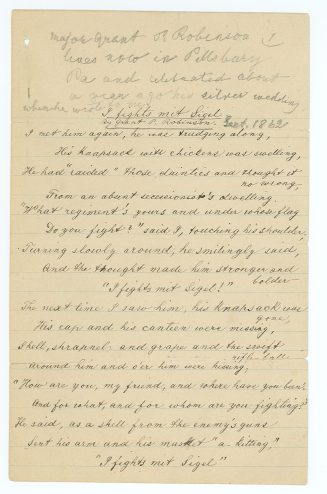 Major Grant P. Robinson (
lives now in Pittsburg
Pa and celebrated about
a year ago his silver wedding
when he wrote to me
I fights mit Sigel
by Grant P. Robinson. Sept. 1862
I met him again, he was trudging along,
His knapsack with chickens was swelling,
He had "raided" those dainties and thought it
no wrong,
From an absent secessionist's dwelling.
"What regiment's yours and under whose flag
Do you fight?" said I, touching his shoulder,
Turning slowly around, he smilingly said,
And the thought made him stronger and
bolder
"I fights mit Sigel!"
The next time I saw him, his knapsack was
gone,
His cap and his canteen were missing,
Shell, shrapnel and grape and the swift
rifle-ball
around him and o'er him were hissing,
"How are you, my friend, and where have you been,
And for what, and for whom are you fighting?"
He said, as a shell from the enemy's guns
Sent his arm and his musket "a-kiting,"
"I fights mit Sigel"